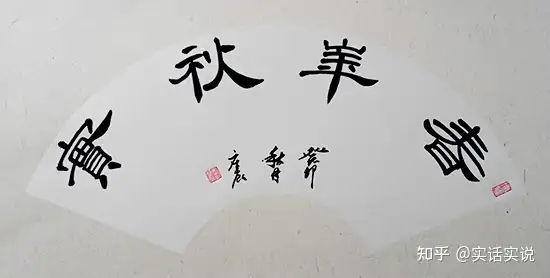 春華秋實
癸卯
知乎 @实话实说